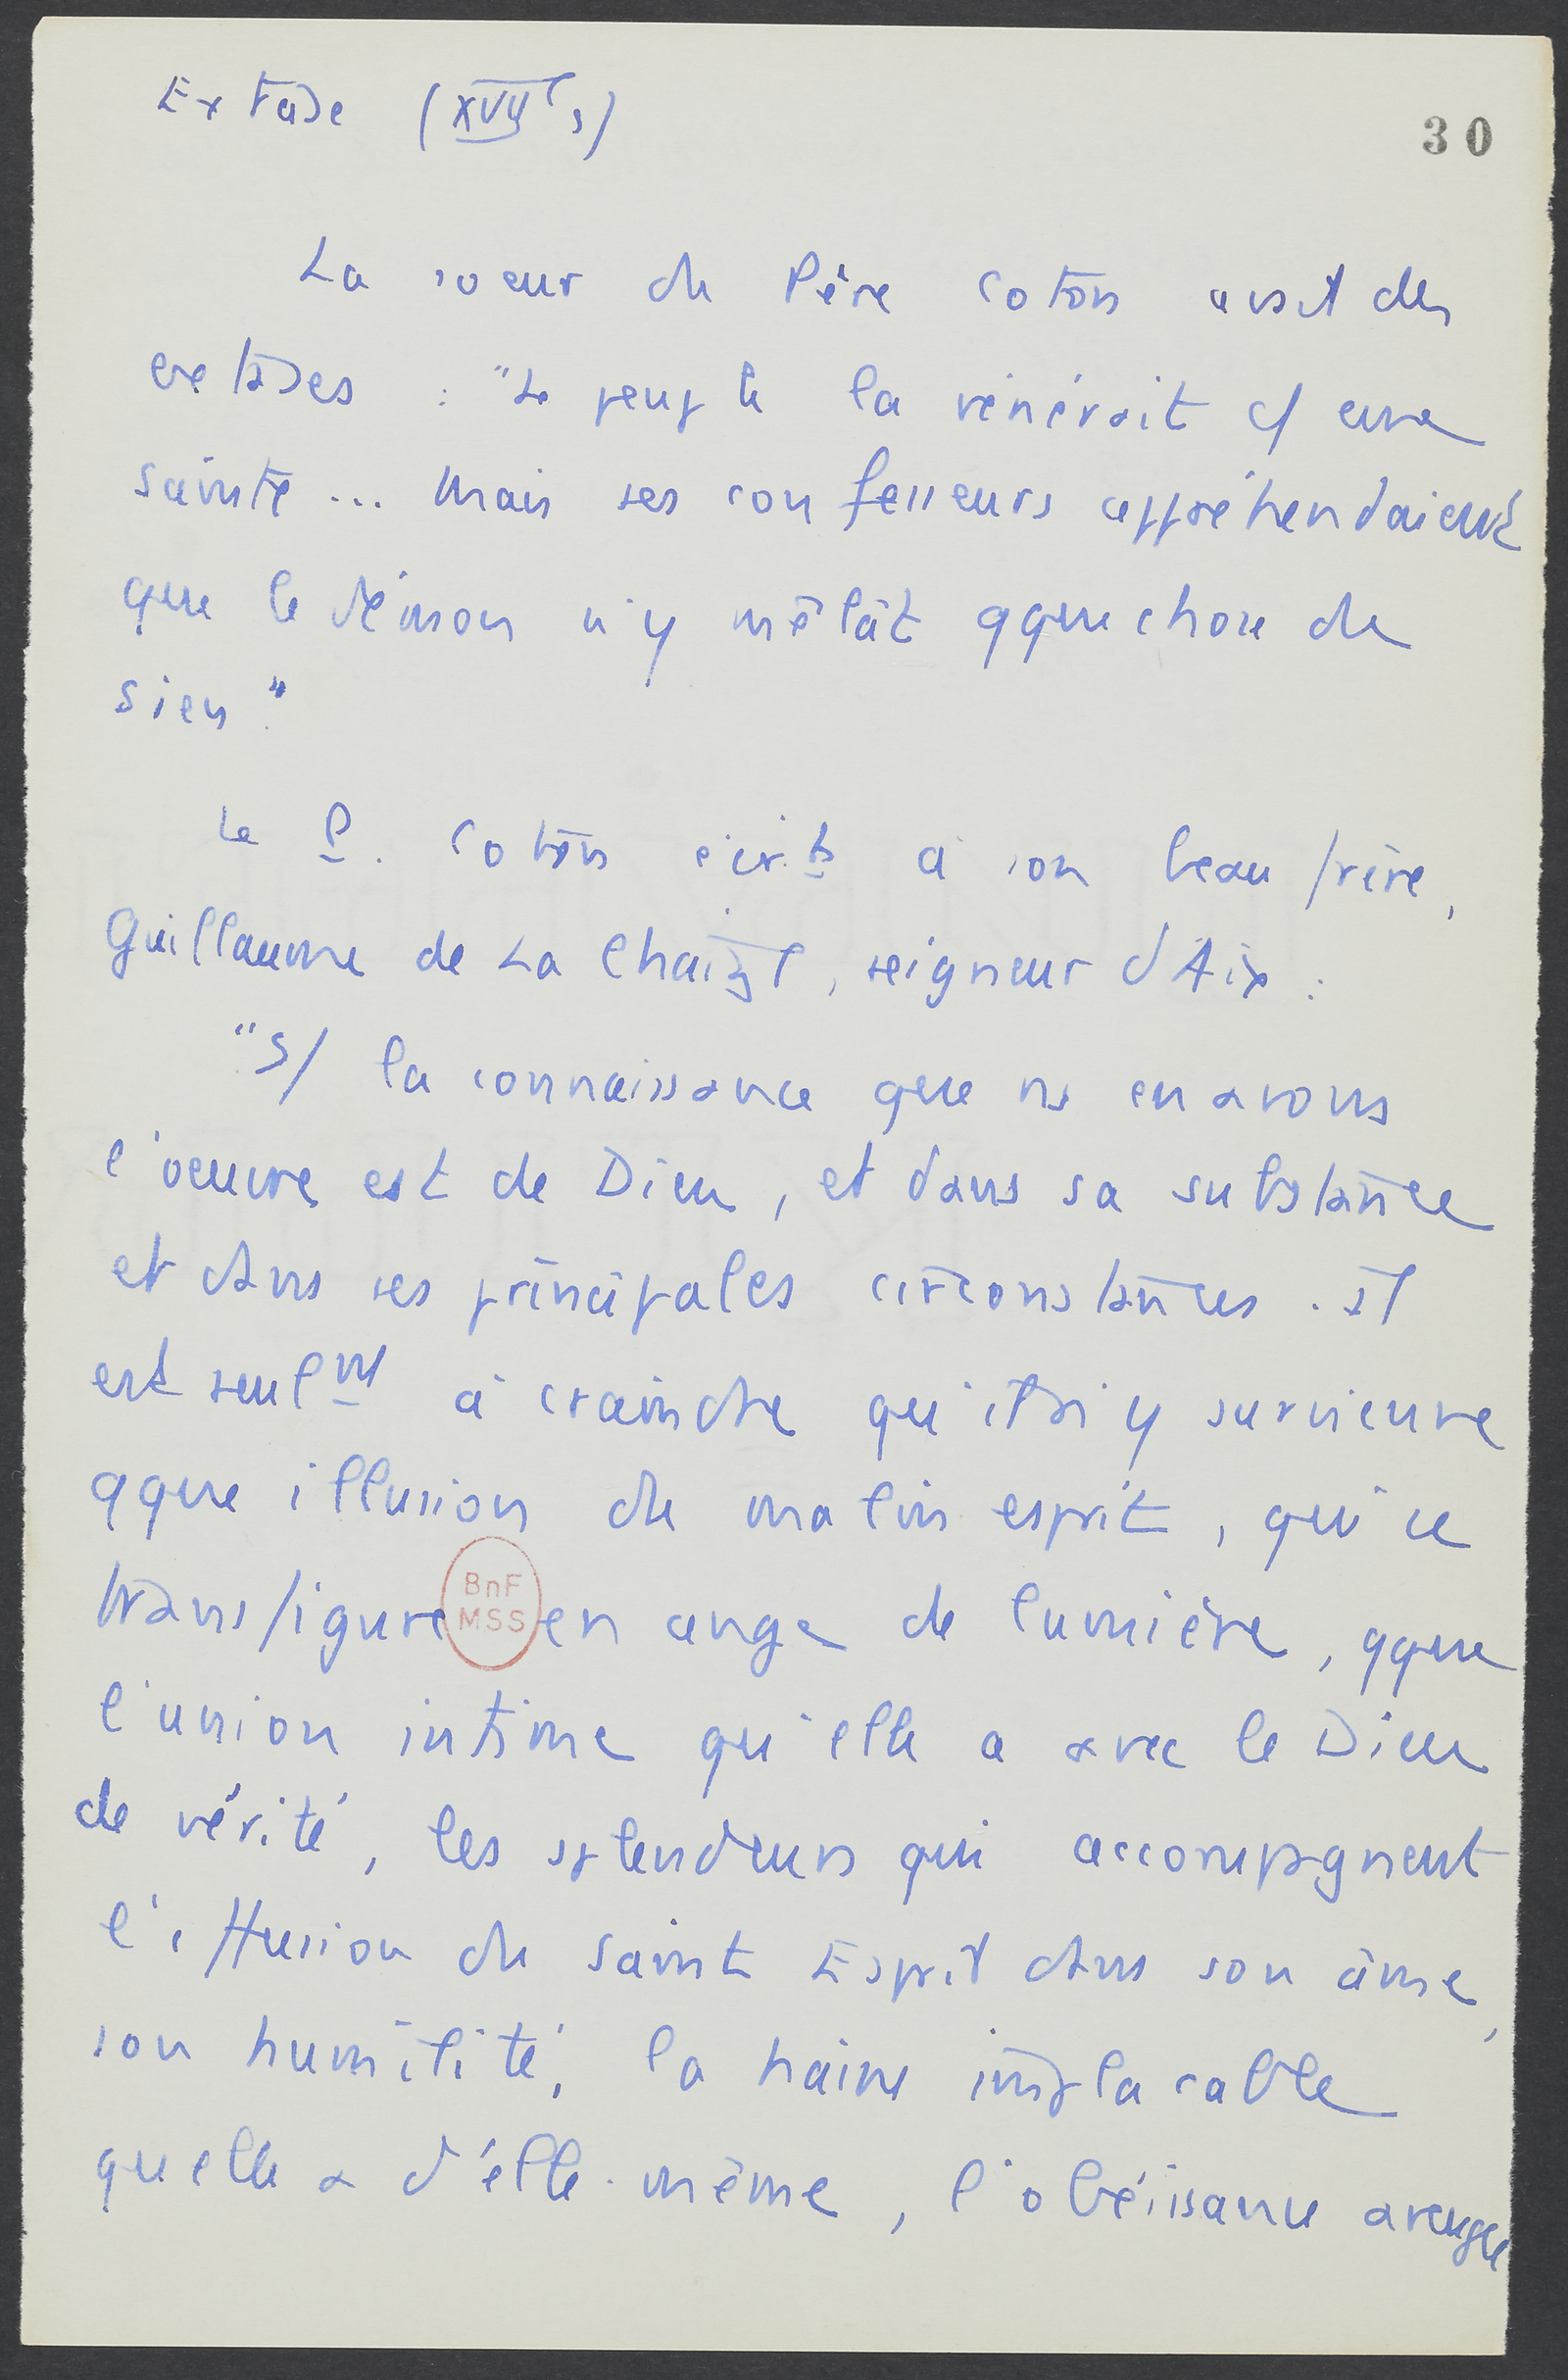 Extase (XVIIe s)
30
La soeur du Père Coton avait des
extases : "Le peuple la vénérait c/ une
sainte ... Mais ses confesseurs appréhendaient
que le démon n'y mêlât qque chose du
sien".
Le P. Coton écrit à son beau frère,
Guillaume de La Chaize, seigneur d'Aix :
"S/ la connaissance que ns en avons
l'oeuvre est de Dieu, et dans sa substance
et dans ses principales circonstances. Il
est seulmt à craindre qu'il n'y survienne
qque illusion du malin esprit, qui se
transfigure en ange de lumière, qque
BnF
MSS
l'union intime qu'elle a avec le Dieu
de vérité, les splendeurs qui accompagnent
l'effusion du Saint Esprit dans son âme,
son humilité, la haine implacable
qu'elle a d'elle-même, l'obéissance aveugle